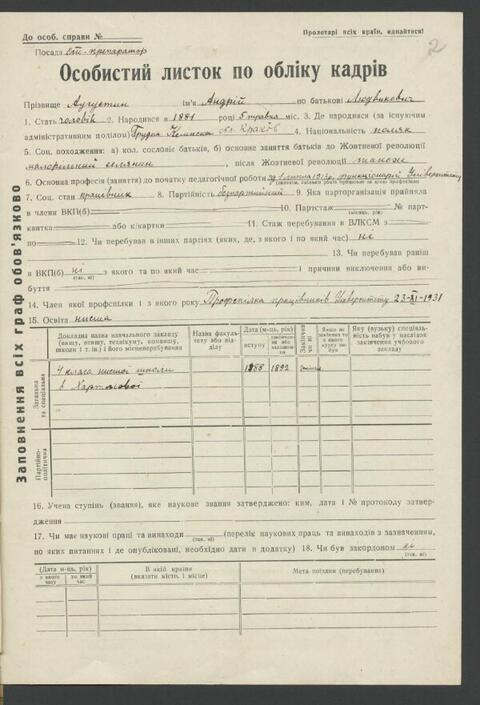 До особ. справи №
Пролетарі всіх країн, єднайтеся!
2
Посада ст. препаратор
Особистий листок по обліку кадрів
Прізвище Аугустин ім'я Андрій по батькові Людвикович
1. Стать чоловік 2. Народився в 1881 році 5 травня міс. 3. Де народився (за існуючим
адміністративним поділом) обл. Краків 4. Національність поляк
5. Соц. походження: а) кол. сословіє батьків, б) основне заняття батьків до Жовтневої революції
малорільний селянин, після Жовтневої революції також
6. Основна професія (заняття) до початку педагогічної роботи функціонарій Університету
7. Соц. стан працівник 8. Партійність безпартійний 9. Яка парторганізація прийняла
в члени ВКП(б) 10. Партстаж № парт-
квитка або к/картки 11. Стаж перебування в ВЛКСМ з
по 12. Чи перебував в інших партіях (яких, де, з якого і по який час) ні
13. Чи перебував раніш
в ВКП(б) ні з якого та по який час і причини виключення або ви-
(так, ні)
буття
14. Член якої профспілки і з якого року Профспілка працівників Університету 23-XI-1931
15. Освіта нисша
Заповнення всіх граф обов'язково
Докладна назва навчального закладу (вишу, втишу, технікуму, комвишу, школи і т. ін.) і його місцеперебування
Назва факультету або відділу
Дата (м-ць, рік)
вступу
Закінчив чи ні
Яку (вузьку) спеціальність набув у наслідок закінчення учбового закладу
Загальна та спеціальна
4 класа нисшої школи 1888 1892
в
Партійно-політична
16. Учена ступінь (звання), яке наукове звання затверджено: ким, дата і № протоколу затвер-
дження
17. Чи має наукові праці та винаходи (перелік наукових праць та винаходів з зазначенням,
(так, ні)
по яких питаннях і де опубліковані, необхідно дати в додатку) 18. Чи був закордоном ні
(так, ні)
(Дата (м-ць, рік)
з якого часу
по який час
В якій країні
(вказати місто, і місце)
Мета поїздки (перебування)